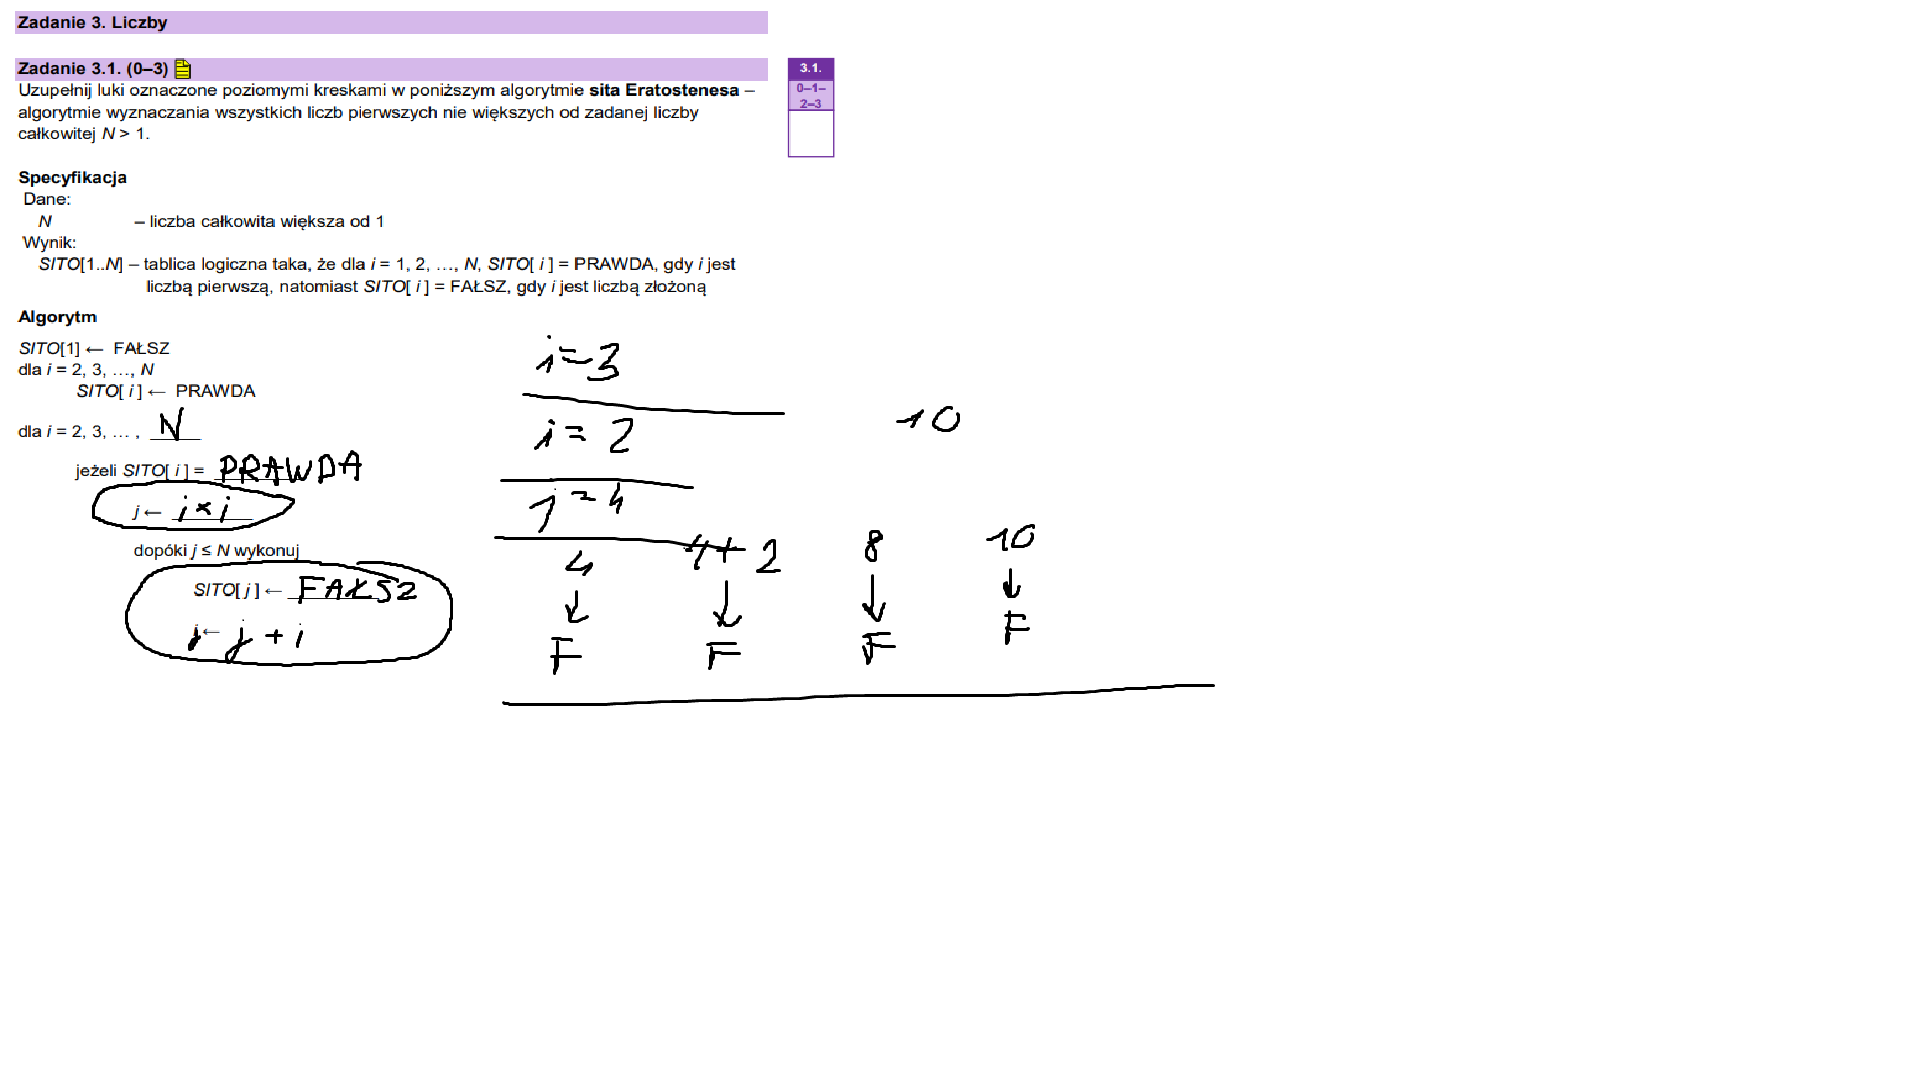 Zadanie 3. Liczby
Zadanie 3.1. (0–3)
3.1.
0–1–
2–3
Uzupełnij luki oznaczone poziomymi kreskami w poniższym algorytmie sita Eratostenesa –
algorytmie wyznaczania wszystkich liczb pierwszych nie większych od zadanej liczby
całkowitej N > 1.
Specyfikacja
Dane:
N – liczba całkowita większa od 1
Wynik:
SITO[1..N] – tablica logiczna taka, że dla i = 1, 2, …, N, SITO[ i ] = PRAWDA, gdy i jest
liczbą pierwszą, natomiast SITO[ i ] = FAŁSZ, gdy i jest liczbą złożoną
Algorytm
SITO[1] ← FAŁSZ
dla i = 2, 3, …, N
SITO[ i ] ← PRAWDA
dla i = 2, 3, … , N
jeżeli SITO[ i ] = PRAWDA
j ← i × i
dopóki j ≤ N wykonuj
SITO[ j ] ← FAŁSZ
j ← j + i
i = 3
i = 2
10
j = 4
4 4 + 2 8 10
↓ ↓ ↓ ↓
F F F F